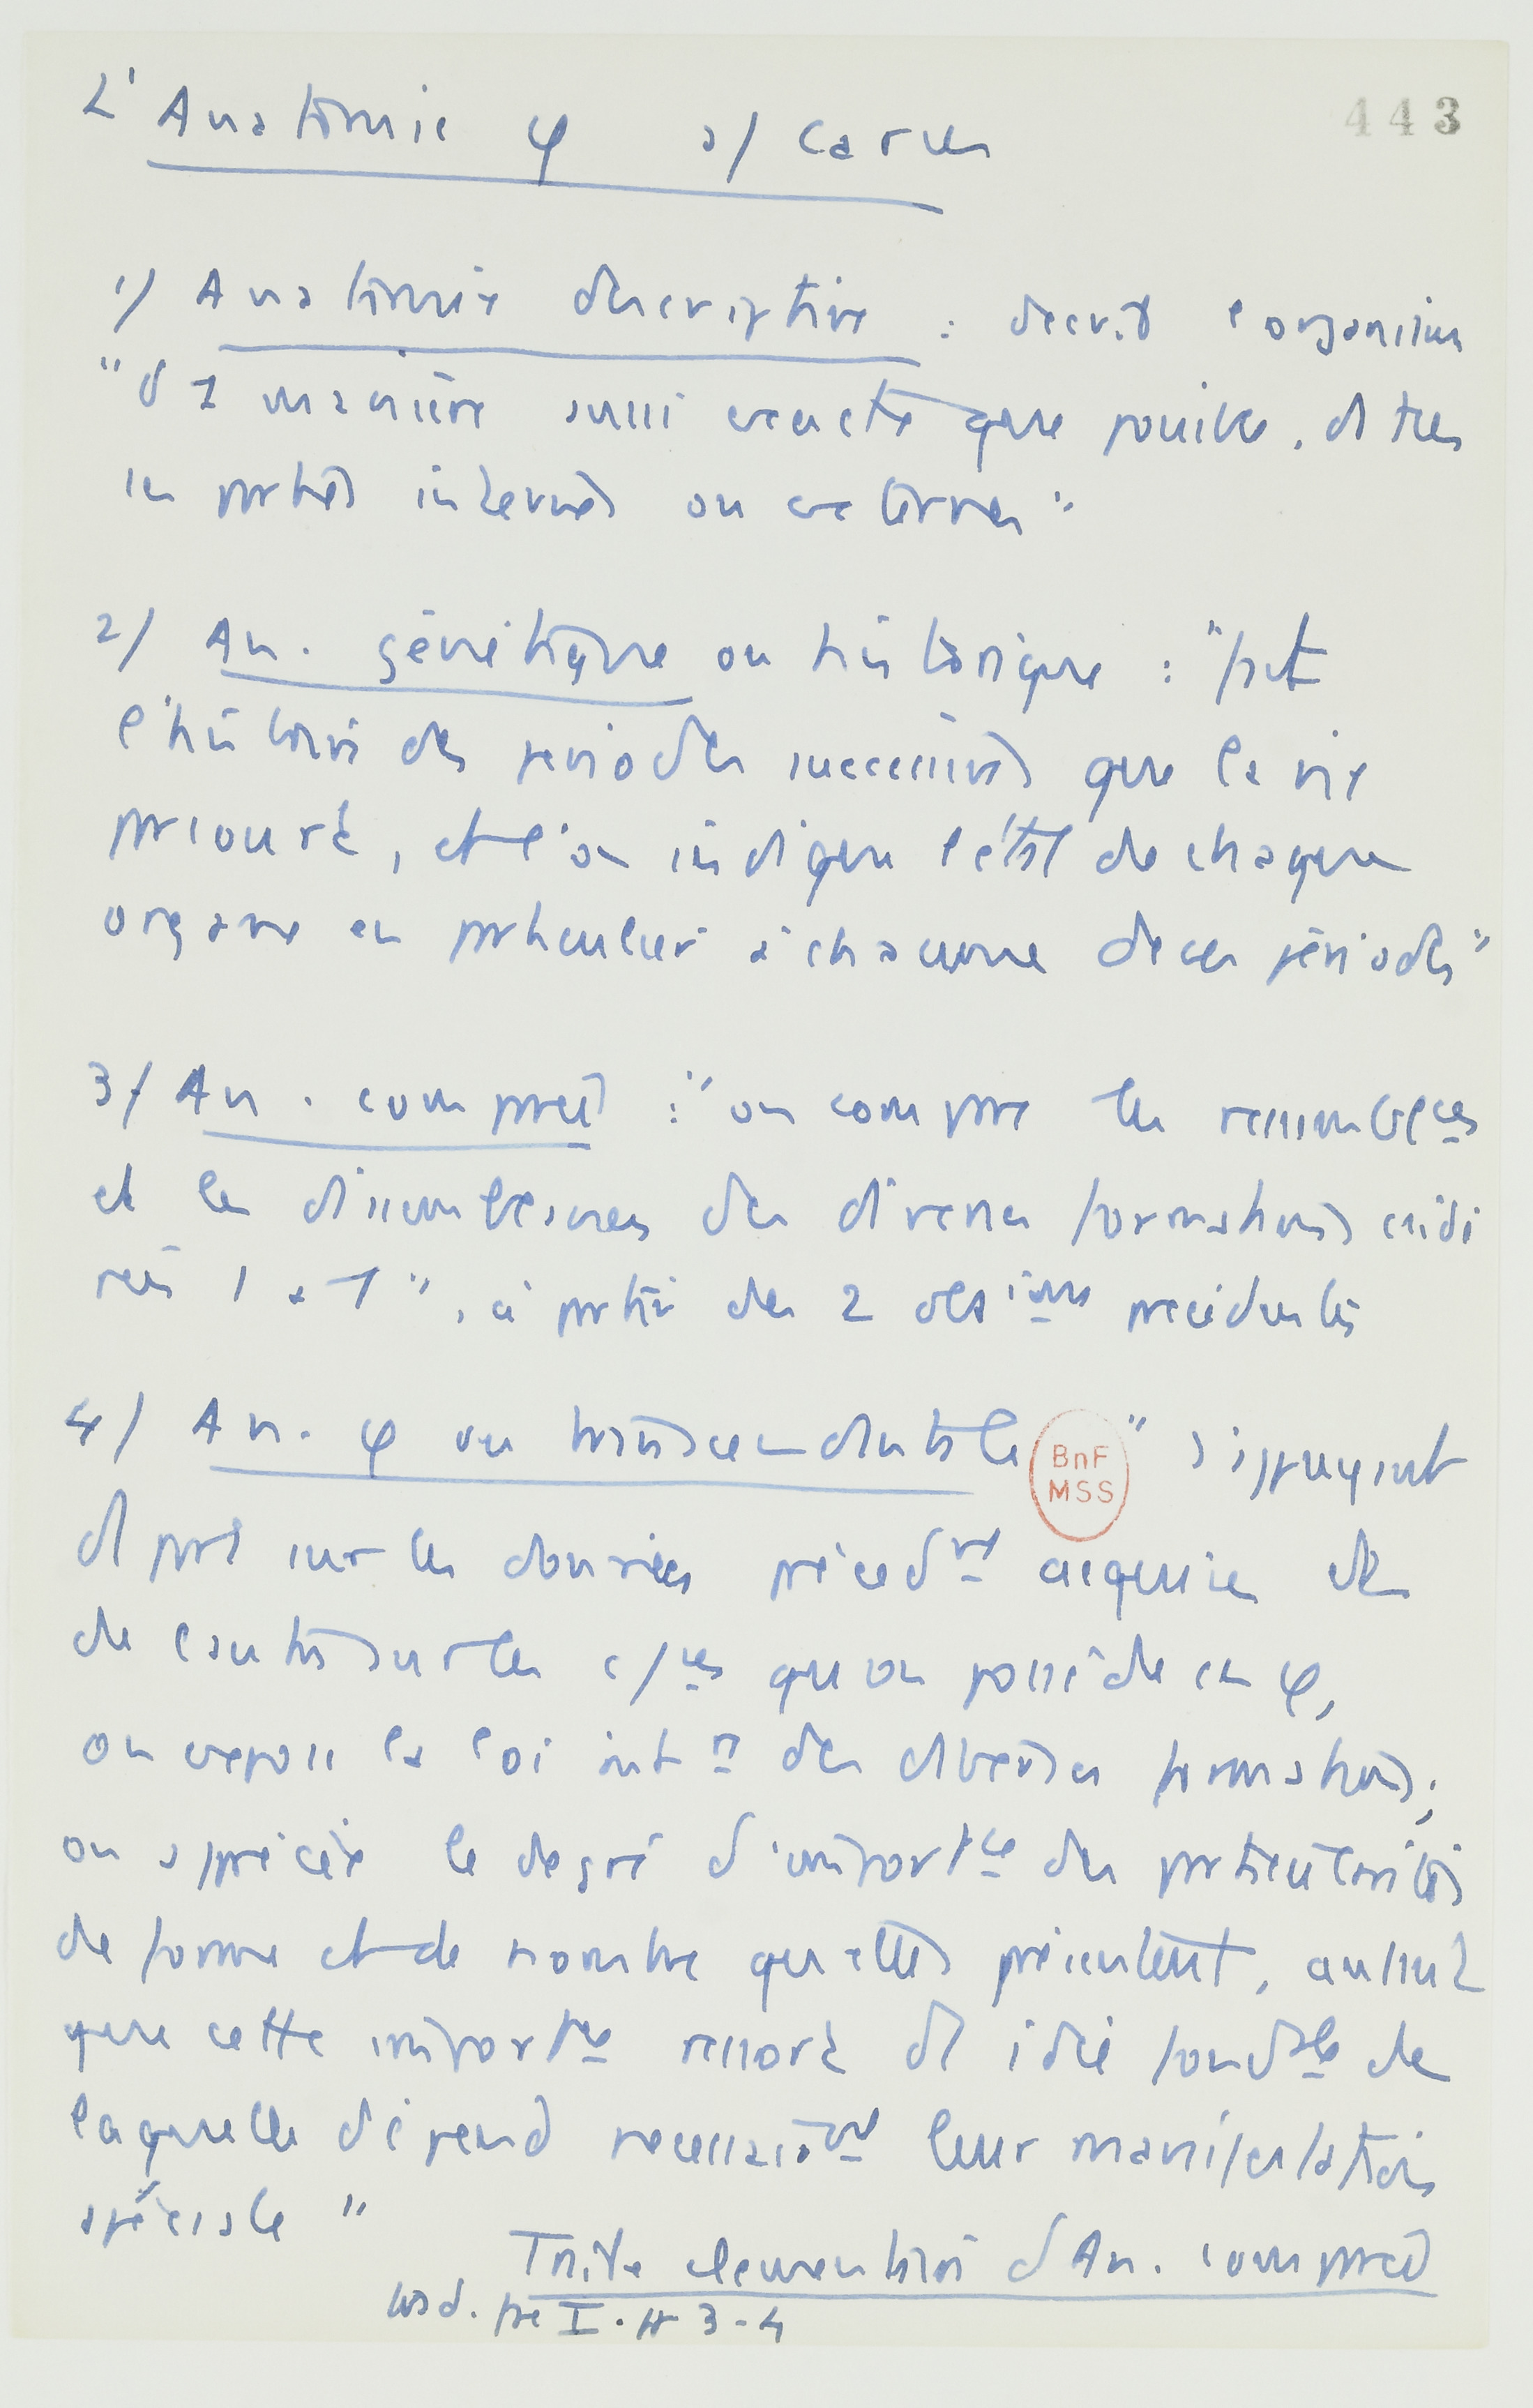 L'Anatomie φ s/ Carus
443
1/ Anatomie descriptive : decrit l'organisme
"d'1 manière aussi exacte que possible, ds ttes
ses parties internes ou externes"
2/ An. génétique ou historique : "fait
l'histoire des periodes successives que la vie
parcourt, et l'on indique l'état de chaque
organe en particulier à chacune de ces périodes"
3/ An. comparée : "on compare les ressemblces
et les dissemblances des diverses formations
1 à 1", à partir des 2 précédentes
4/ An. φ ou transcendantale
BnF
MSS
" s'appuyant
d'1 part sur les données précedt acquises et
de l'autre sur les c/ces qu'on possède en φ,
on expose la loi int re des diverses formations;
on apprécie le degré d'importce des particularités
de forme et de nombre qu'elles présentent, autant
que cette importce ressort de l'idée fondale de
laquelle dépend necessairt leur manifestation
spéciale"
Traité elementaire d'An. comparée
trad. fse I. pp 3-4